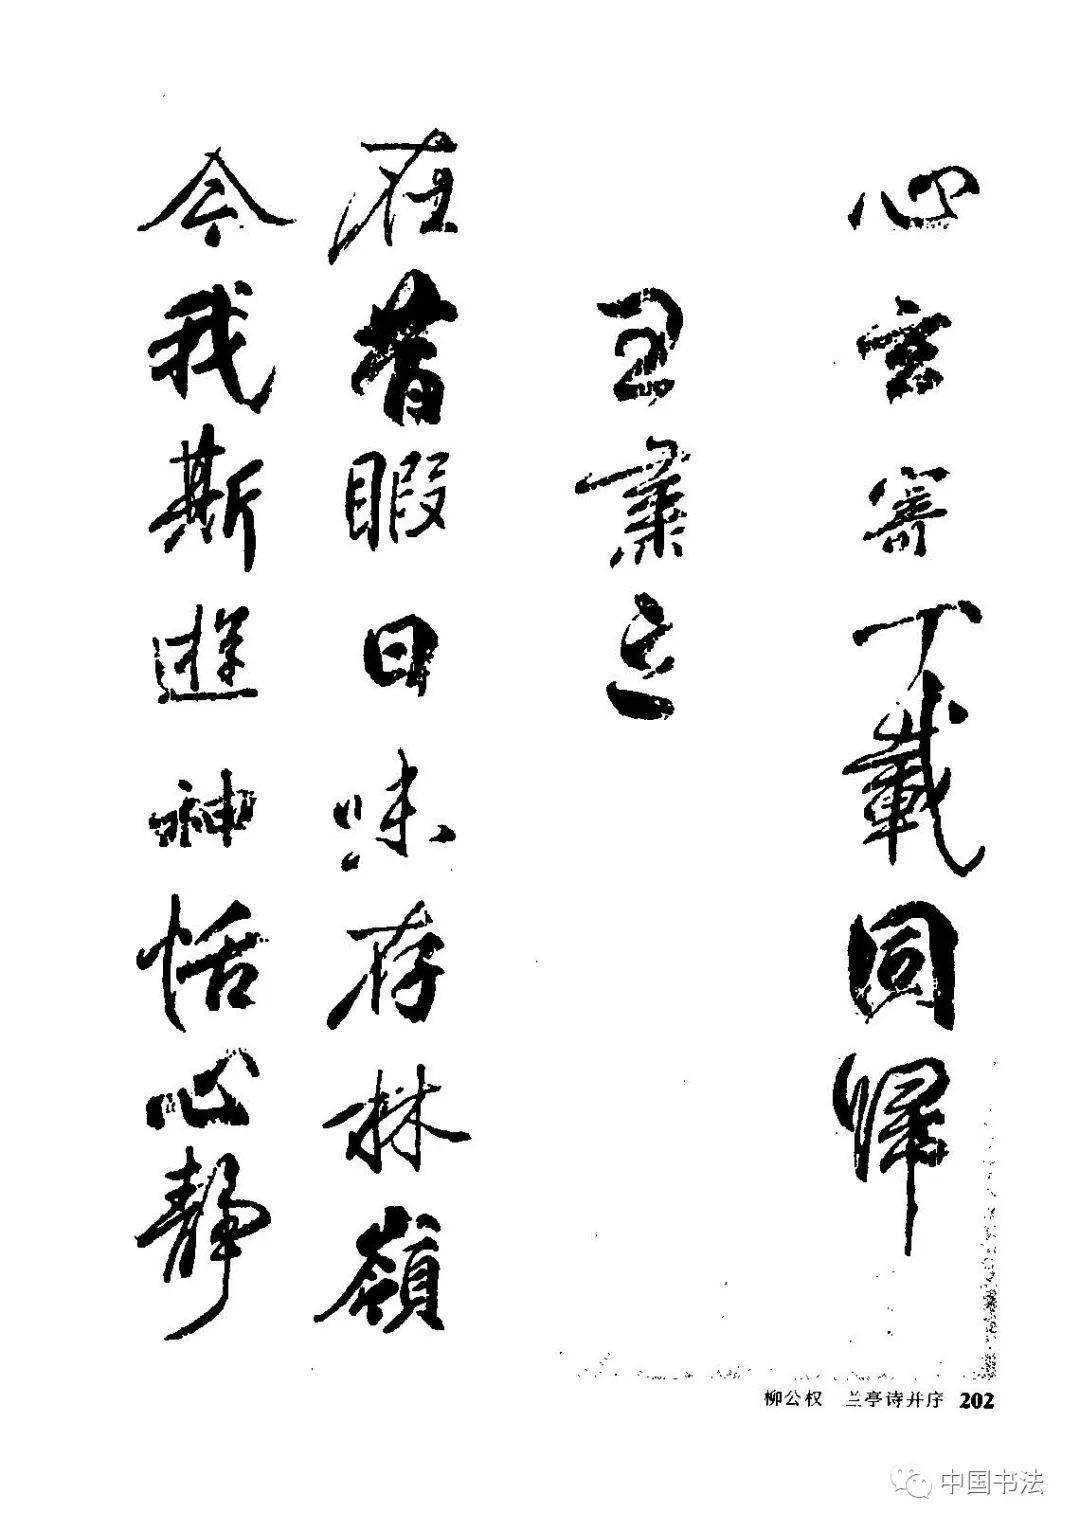 心玄寄千載同歸
王肅之
在昔暇日味存林嶺
今我斯遊神恬心靜
柳公权 兰亭诗并序 202
中国书法